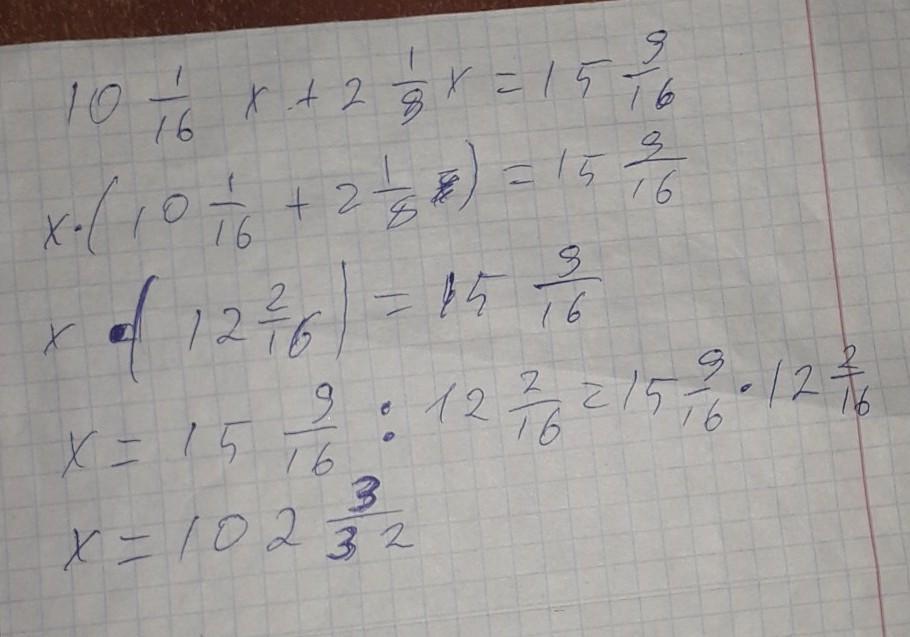 10 1/16 x + 2 1/8 x = 15 9/16
x · (10 1/16 + 2 1/8) = 15 9/16
x · (12 2/16) = 15 9/16
x = 15 9/16 : 12 2/16 = 15 9/16 · 12 2/16
x = 102 3/32